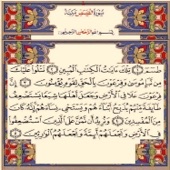 سُورَةُ القَصَصِ
بِسْمِ اللَّهِ الرَّحْمَٰنِ الرَّحِيمِ
طسٓمٓ تِلْكَ ءَايَٰتُ ٱلْكِتَٰبِ ٱلْمُبِينِ نَتْلُوا۟ عَلَيْكَ
مِن نَّبَإِ مُوسَىٰ وَفِرْعَوْنَ بِٱلْحَقِّ لِقَوْمٍ يُؤْمِنُونَ إِنَّ
فِرْعَوْنَ عَلَا فِى ٱلْأَرْضِ وَجَعَلَ أَهْلَهَا شِيَعًا يَسْتَضْعِفُ
طَآئِفَةً مِّنْهُمْ يُذَبِّحُ أَبْنَآءَهُمْ وَيَسْتَحْىِۦ نِسَآءَهُمْ إِنَّهُۥ كَانَ
مِنَ ٱلْمُفْسِدِينَ وَنُرِيدُ أَن نَّمُنَّ عَلَى ٱلَّذِينَ ٱسْتُضْعِفُوا۟
فِى ٱلْأَرْضِ وَنَجْعَلَهُمْ أَئِمَّةً وَنَجْعَلَهُمُ ٱلْوَٰرِثِينَ